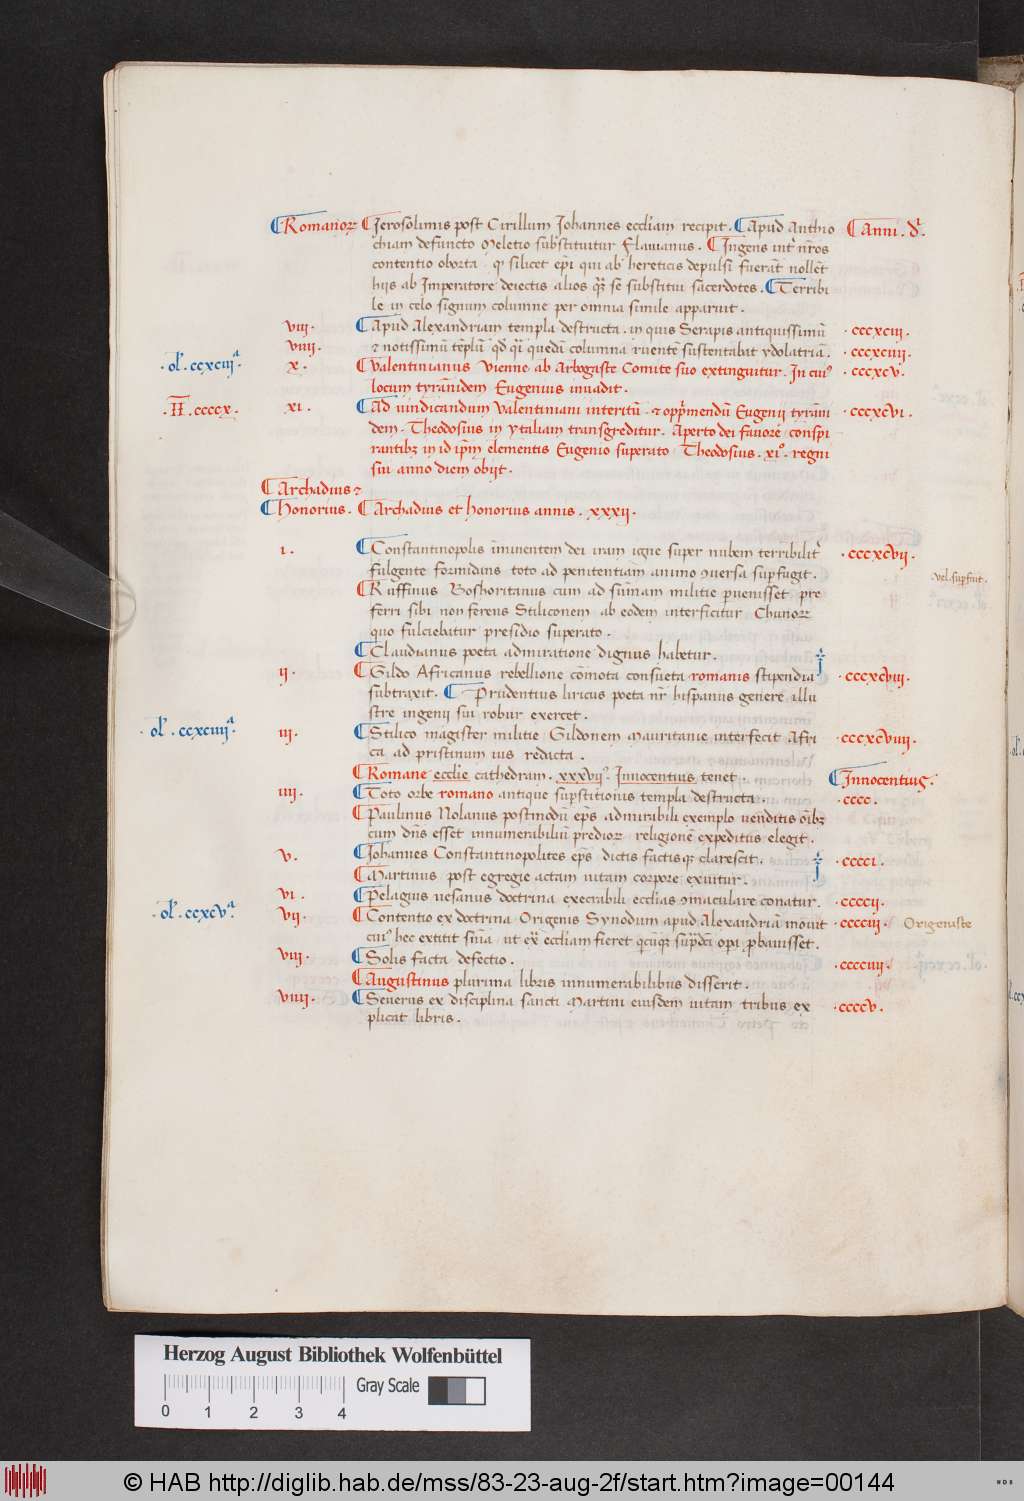 Romanoꝝ Jerosolimis post Cirillum Johannes eccl'iam recipit. Apud Anthio Anni. d̄ı.
chiam defuncto Meletio substituitur Flauianus. Ingens int' nr̄os
contentio oborta. qꝫ silicet ep̄i qui ab hereticis depulsi fuerāt nollēt
hijs ab Imperatore deiectis alios qꝫ se substitui sacerdotes. Terribi
le in celo signum columne per omnia simile apparuit.
viii. Apud Alexandriam templa destructa. in quis Serapis antiquissimū .cccxciii.
viiii. & notissimū tēplū qd' qͥ quedā columna ruentē sustentabat ydolatriā. .cccxciiii.
.ol. ccxciijª. x. Valentinianus Vienne ab Arbogaste Comite suo extinguitur. In cui᾿ .cccxcv.
locum tyrānidem Eugenius inuadit.
.I̅I̅.ccccx. xi. Ad uindicandum Valentiniani interitū. & opp'mendū Eugenii tyrāni .cccxcvi.
dem. Theodosius in ytaliam transgreditur. Aperto dei fauore conspi
rantibꝫ in id ip̄m elementis Eugenio superato Theodosius .xi°. regni
sui anno diem obijt.
Archadius &
Honorius. Archadius et Honorius annis. xxxij.
i. Constantinopolis iminentem dei iram igne super nubem terribilit' .cccxcvij.
fulgente formidans toto ad penitentiam animo ↄuersa sup̄fugit. vel. sup̄fuit.
Ruffinus Boshoritanus cum ad sūmam militie p̄uenisset pre
ferri sibi non ferens Stiliconem ab eodem interficitur Chunoꝝ
quo fulciebatur presidio superato.
Claudianus poeta admiratione dignus habetur.
ij. Gildo Africanus rebellione cōmota consueta romanis stipendia .cccxcviij.
subtraxit. Prudentius liricus poeta nr̄ hispanus genere illu
stre ingenij sui robur exercet.
.ol. ccxciiijª. iij. Stilico magister militie Gildonem Mauritanie interfecit Afri .cccxcviiij.
ca ad pristinum ius redacta.
Romane eccl'ie cathedram. xxxvij°. Innocentius tenet. Innocentius.
iiij. Toto orbe romano antique sup̄stitionis templa destructa. .cccc.
Paulinus Nolanus postmodū ep̄s admirabili exemplo uenditis oībꝫ
cum dn̄s esset innumerabiliū predioꝝ religionē expeditus elegit.
v. Johannes Constantinopolites ep̄s dictis factisqꝫ clarescit. .cccci.
Martinus post egregie actam uitam corpore exuitur.
vi. Pelagius uesanus doctrina execrabili eccl'ias ↄmaculare conatur. .ccccij.
.ol. ccxcvª. vij. Contentio ex doctrina Origenis Synodum apud Alexandriā mouit .cccciij. Origeniste
cui᾿ hec extitit sn̄ia ut ex eccl'iam fieret
viij. Solis facta defectio. .cccciiij.
Augustinus plurima libris innumerabilibus disserit.
viiij. Seuerus ex disciplina sancti Martini eiusdem uitam tribus ex .ccccv.
plicat libris.
Herzog August Bibliothek Wolfenbüttel
Gray Scale
0 1 2 3 4
© HAB http://diglib.hab.de/mss/83-23-aug-2f/start.htm?image=00144